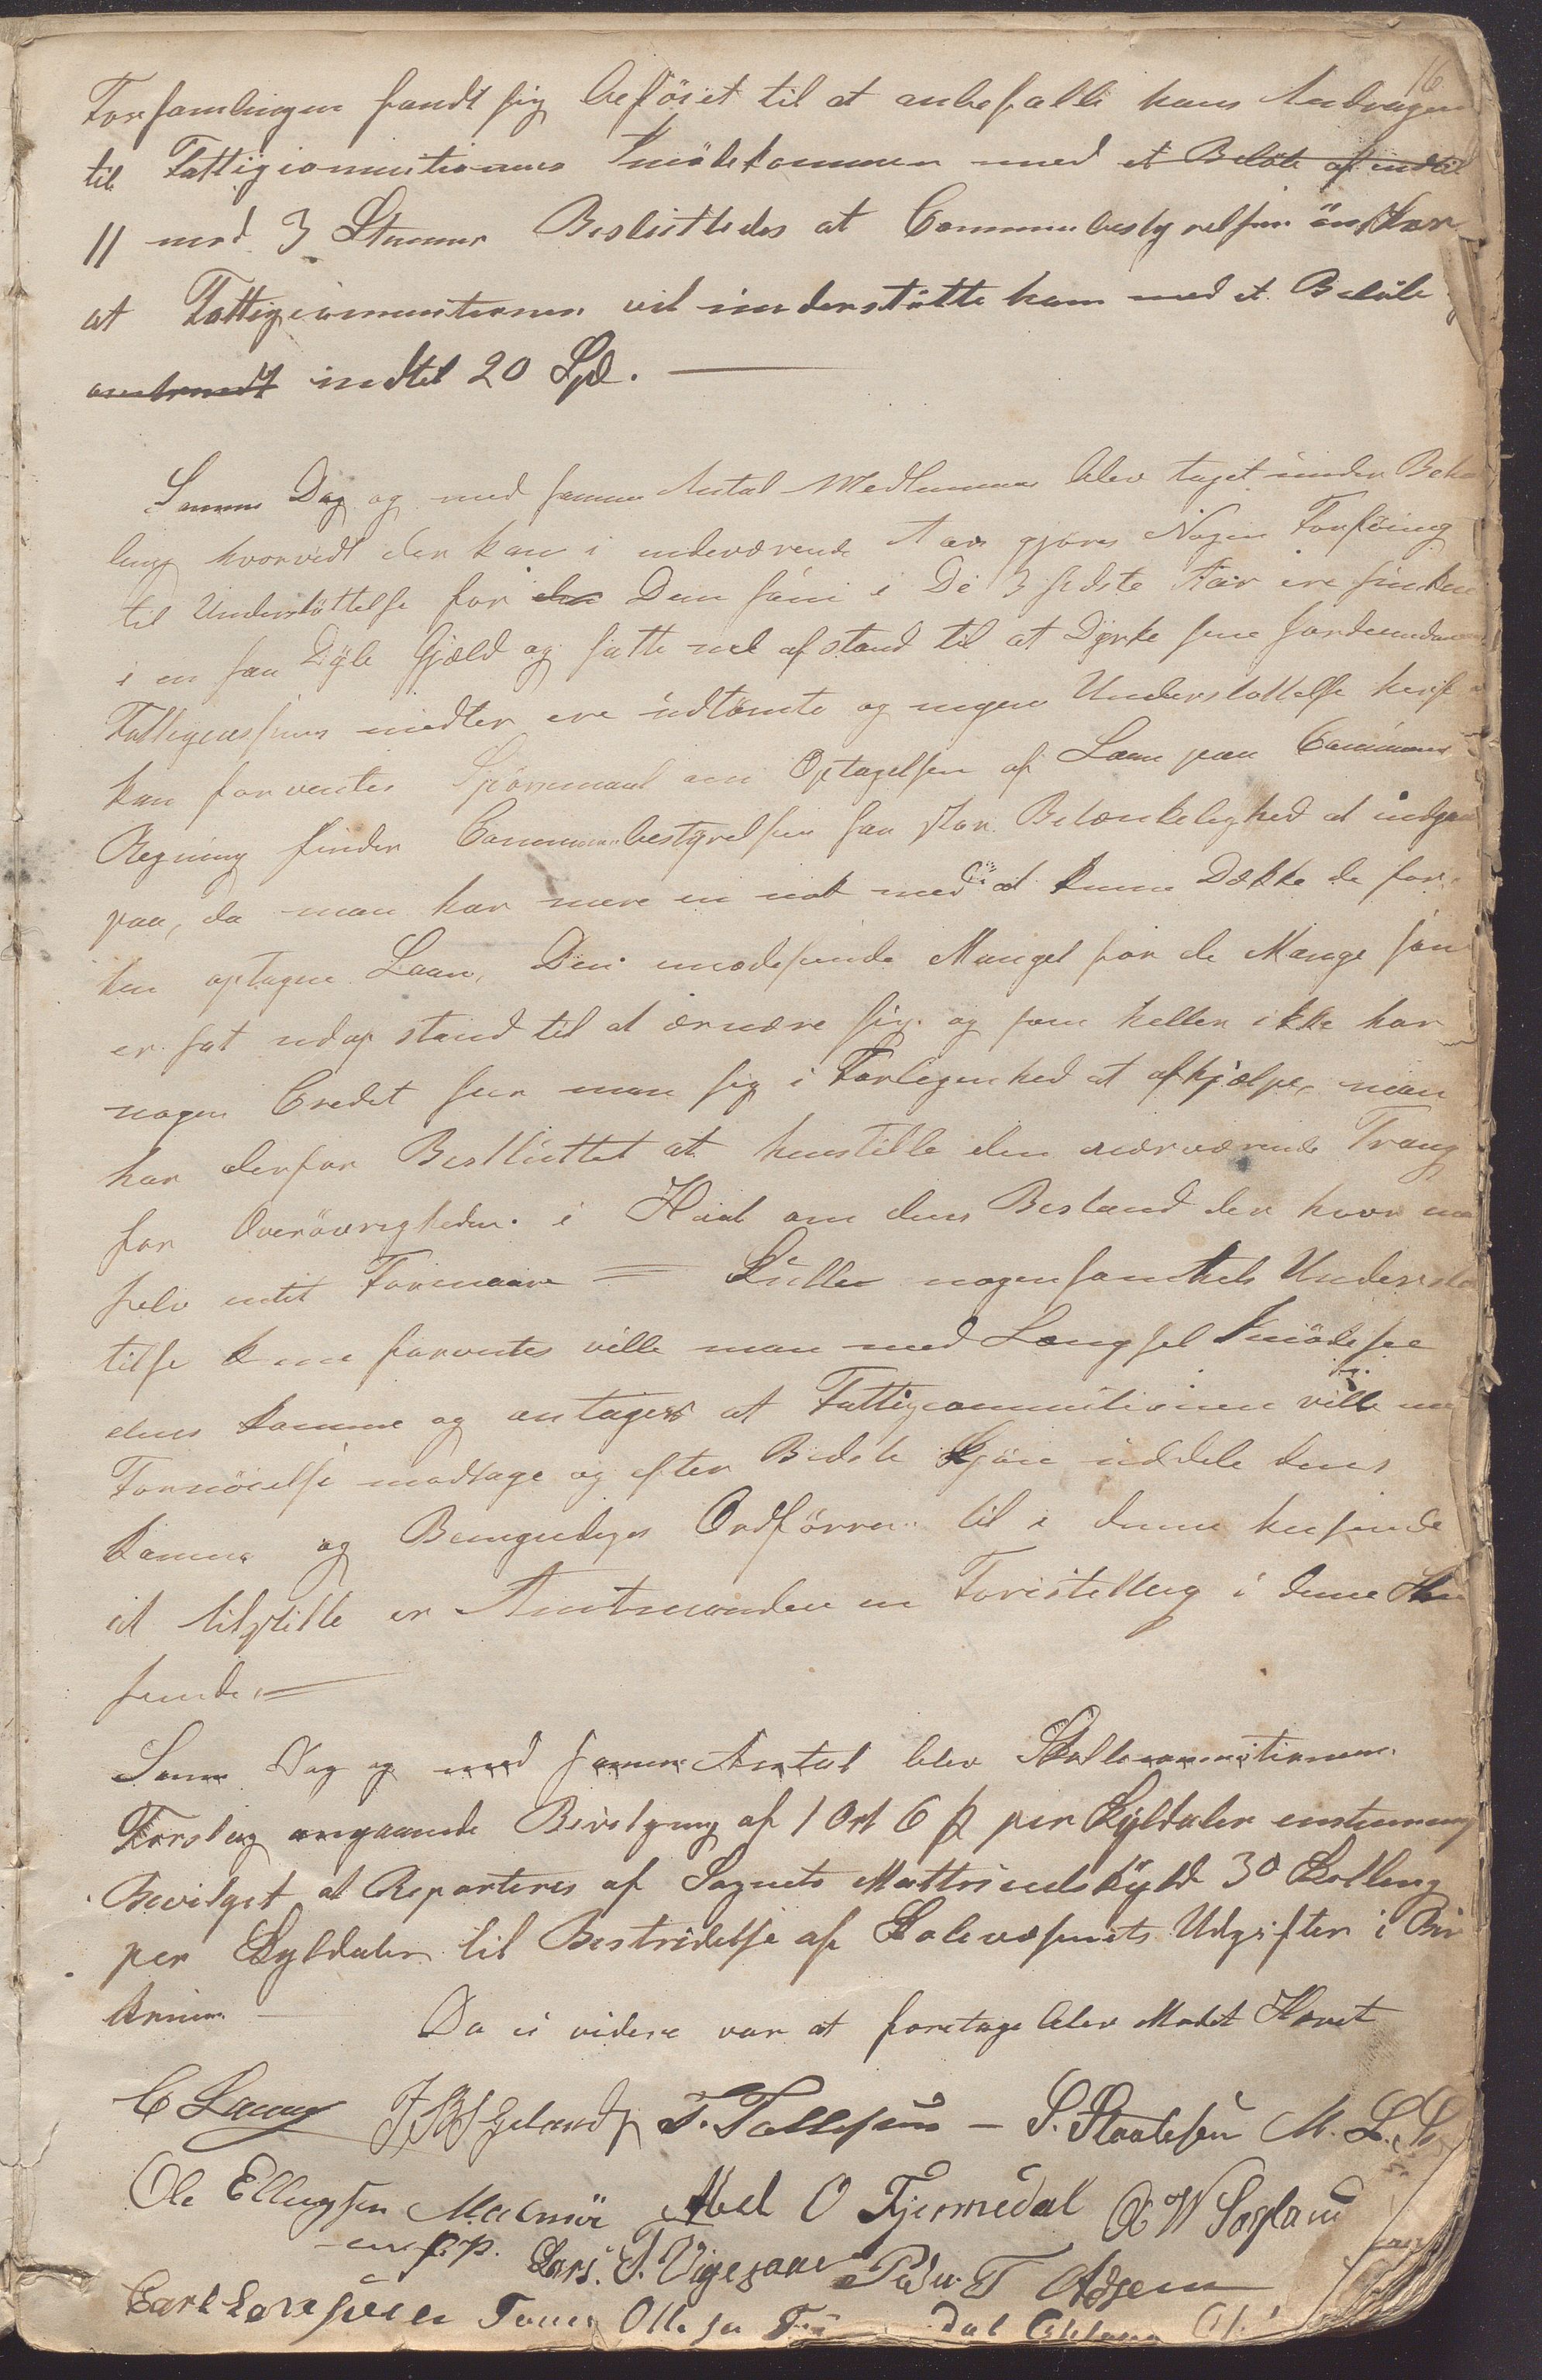 16
Forsamlingen fandt sig beføiet til at anbefalle hans Andragen
til Fattigcommitionens Imødekommen med et Beløb af indtil
11 mod 3 Stemmer Besluttedes at Communebestyrelsen ønsker
at Fattigcommitionen vil understøtte ham med et Beløb
omtrendt indtil 20 Spd.
Samme Dag og med samme Antal Medlemmer blev taget under Beha
ling hvorvidt der kan i indeværende Aar gjøres Nogen Forføing
til Understøttelse for den Dem som i De 3 sidste Aar ere sunken
i en saa Dyb Gjæld og satte ud af stand til at Dyrke sine Jordeiendomme
Fattigcassens midler ere udtømte og ingen Understøttelse herfra
kan forventes Spørsmaal om Optagelsen af Laan paa Communens
Regning finder Communebestyrelsen saa stor Betænkelighed at indgaa
paa, da man har mere en nok med at kunne Dække de for
hen optagne Laan, Den imødeseende Mangel for de Mange som
er sat ud af stand til at ernære sig og som heller ikke har
nogen Credit seer man sig i Forlegenhed at afhjælpe, man
har derfor Besluttet at henstille den nærværende Trang
for Overøvrigheden i Haab om dens Bistand der hvor man
selv intet Formaar = Skulle nogensomhelst Understø
telse kun forventes ville man med Længsel Imødesee
dens komme og antages at Fattigcommitionen ville med
Fornøielse modtage og efter Bedste Skjøn uddele dens
komme og Bemyndiges Ordføreren til i denne henseende
at tilstille er Amtmanden en Forestilling i denne Hen
seende. =
Samme Dag og med samme Antal blev Skollecommitionens
Forslag angaaende Bevilgning af 1 Ort 6 ß per Skyldaler enstemmig
Bevilget at Reparteres af Sognets Mattriculskyld 30 Skelling
per Skyldaler til Bestridelse af Skolevæsenets Udgifter i Bir
krem. — Da ei videre var at foretage blev Mødet Hævet
T. Tollefsen — S. Staalesen M. L. S
Ole Ellingsen Malmei Abel O Fjermedal O W Sagland
m. f. p. Lars. S. Vigesaae Peder T
Carl Larsen Tønnes Ollesen